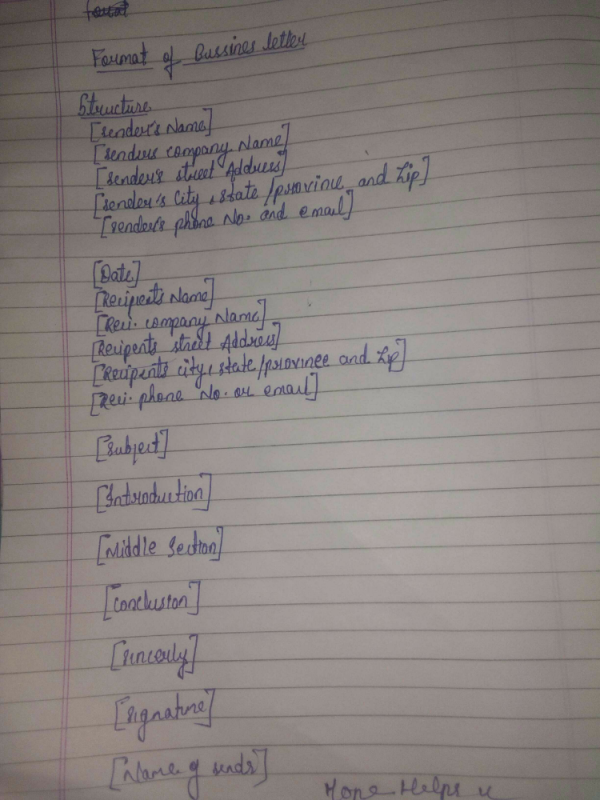 Format of Bussines letter
Structure
[sender's Name]
[senders company Name]
[sender's street Address]
[sender's City, state/province and Zip]
[sender's phone No. and email]
[Date]
[Recipients Name]
[Reci. company Name]
Recipents street Address]
[Recipents city, state/province and Zip]
[Reci. phone No. or email]
[Subject]
[Introduction]
[Middle Section]
[Conclusion]
[sincerly]
[signature]
[Name of sendr]
Hope Helps u